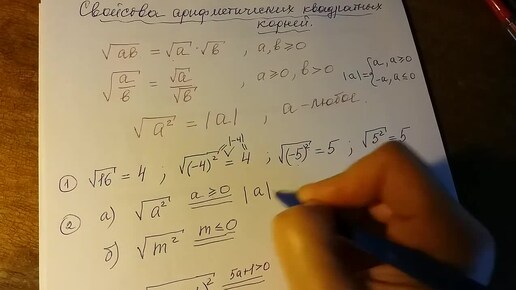 Свойства арифметических квадратных
корней.
√ab = √a · √b , a, b ≥ 0
√(a/b) = √a/√b , a ≥ 0, b > 0 |a| = { a, a ≥ 0
-a, a ≤ 0
√a² = |a| , a - любое.
|-4|
① √16 = 4 ; √(-4)² = 4 ; √(-5)² = 5 ; √5² = 5
② а) √a² a ≥ 0 |a|
б) √m² m ≤ 0
5a+1>0